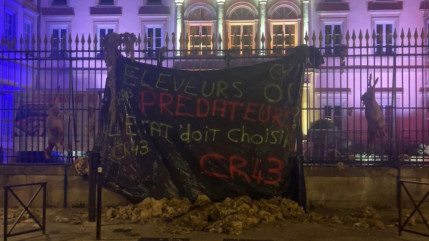 ELEVEURS OU
PREDATEURS
L'ETAT doit choisir
CR43
CR43